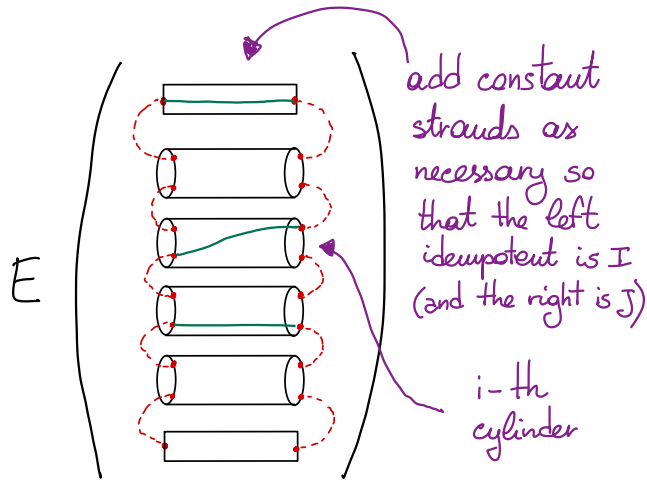 add constant
strands as
necessary so
that the left
idempotent is I
(and the right is J)
E
i-th
cylinder